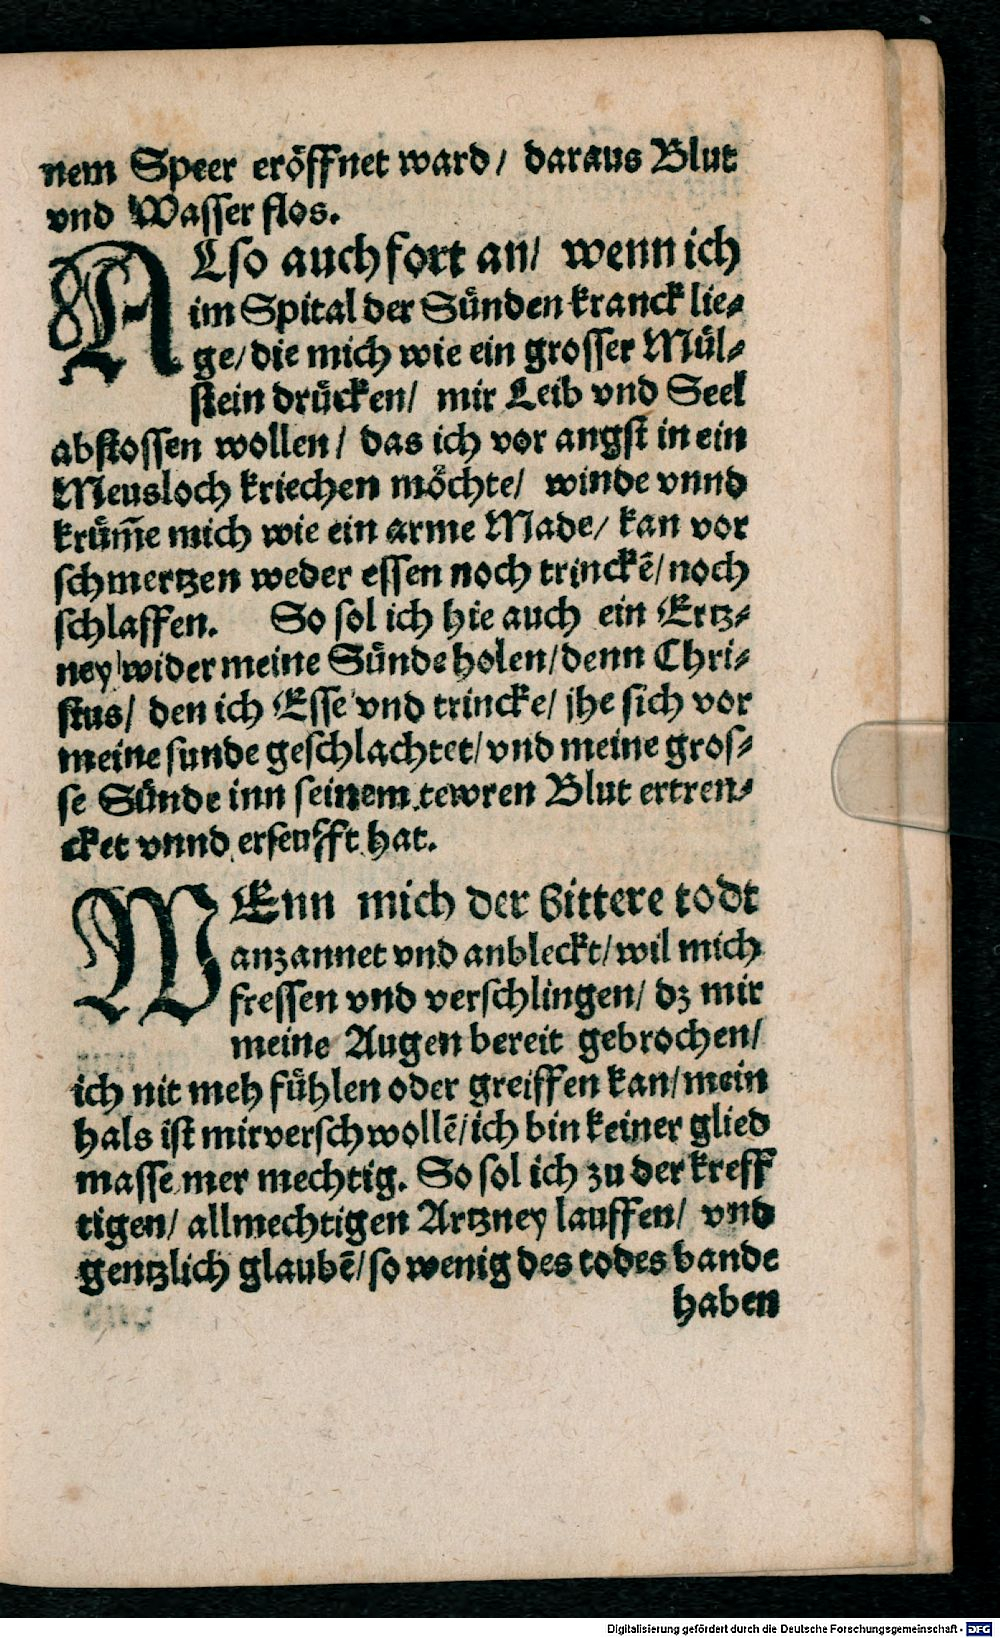 nem Speer eröffnet ward/ daraus Blut
vnd Wasser flos.
ALso auch fort an/ wenn ich
im Spital der Sünden kranck lie-
ge/ die mich wie ein grosser Mül-
stein drücken/ mir Leib vnd Seel
abstossen wollen/ das ich vor angst in ein
Meusloch kriechen möchte/ winde vnnd
krüm̄e mich wie ein arme Made/ kan vor
schmertzen weder essen noch trinckē/ noch
schlaffen. So sol ich hie auch ein Ertz-
ney wider meine Sünde holen/ denn Chri-
stus/ den ich Esse vnd trincke/ jhe sich vor
meine sunde geschlachtet/ vnd meine gros-
se Sünde inn seinem tewren Blut ertren-
cket vnnd erseufft hat.
WEnn mich der bittere todt
anzannet vnd anbleckt/ wil mich
fressen vnd verschlingen/ dz mir
meine Augen bereit gebrochen/
ich nit meh fühlen oder greiffen kan/ mein
hals ist mir verschwollē/ ich bin keiner glied
masse mer mechtig. So sol ich zu der kreff
tigen/ allmechtigen Artzney lauffen/ vnd
gentzlich glaubē/ so wenig des todes bande
haben
Digitalisierung gefördert durch die Deutsche Forschungsgemeinschaft - DFG